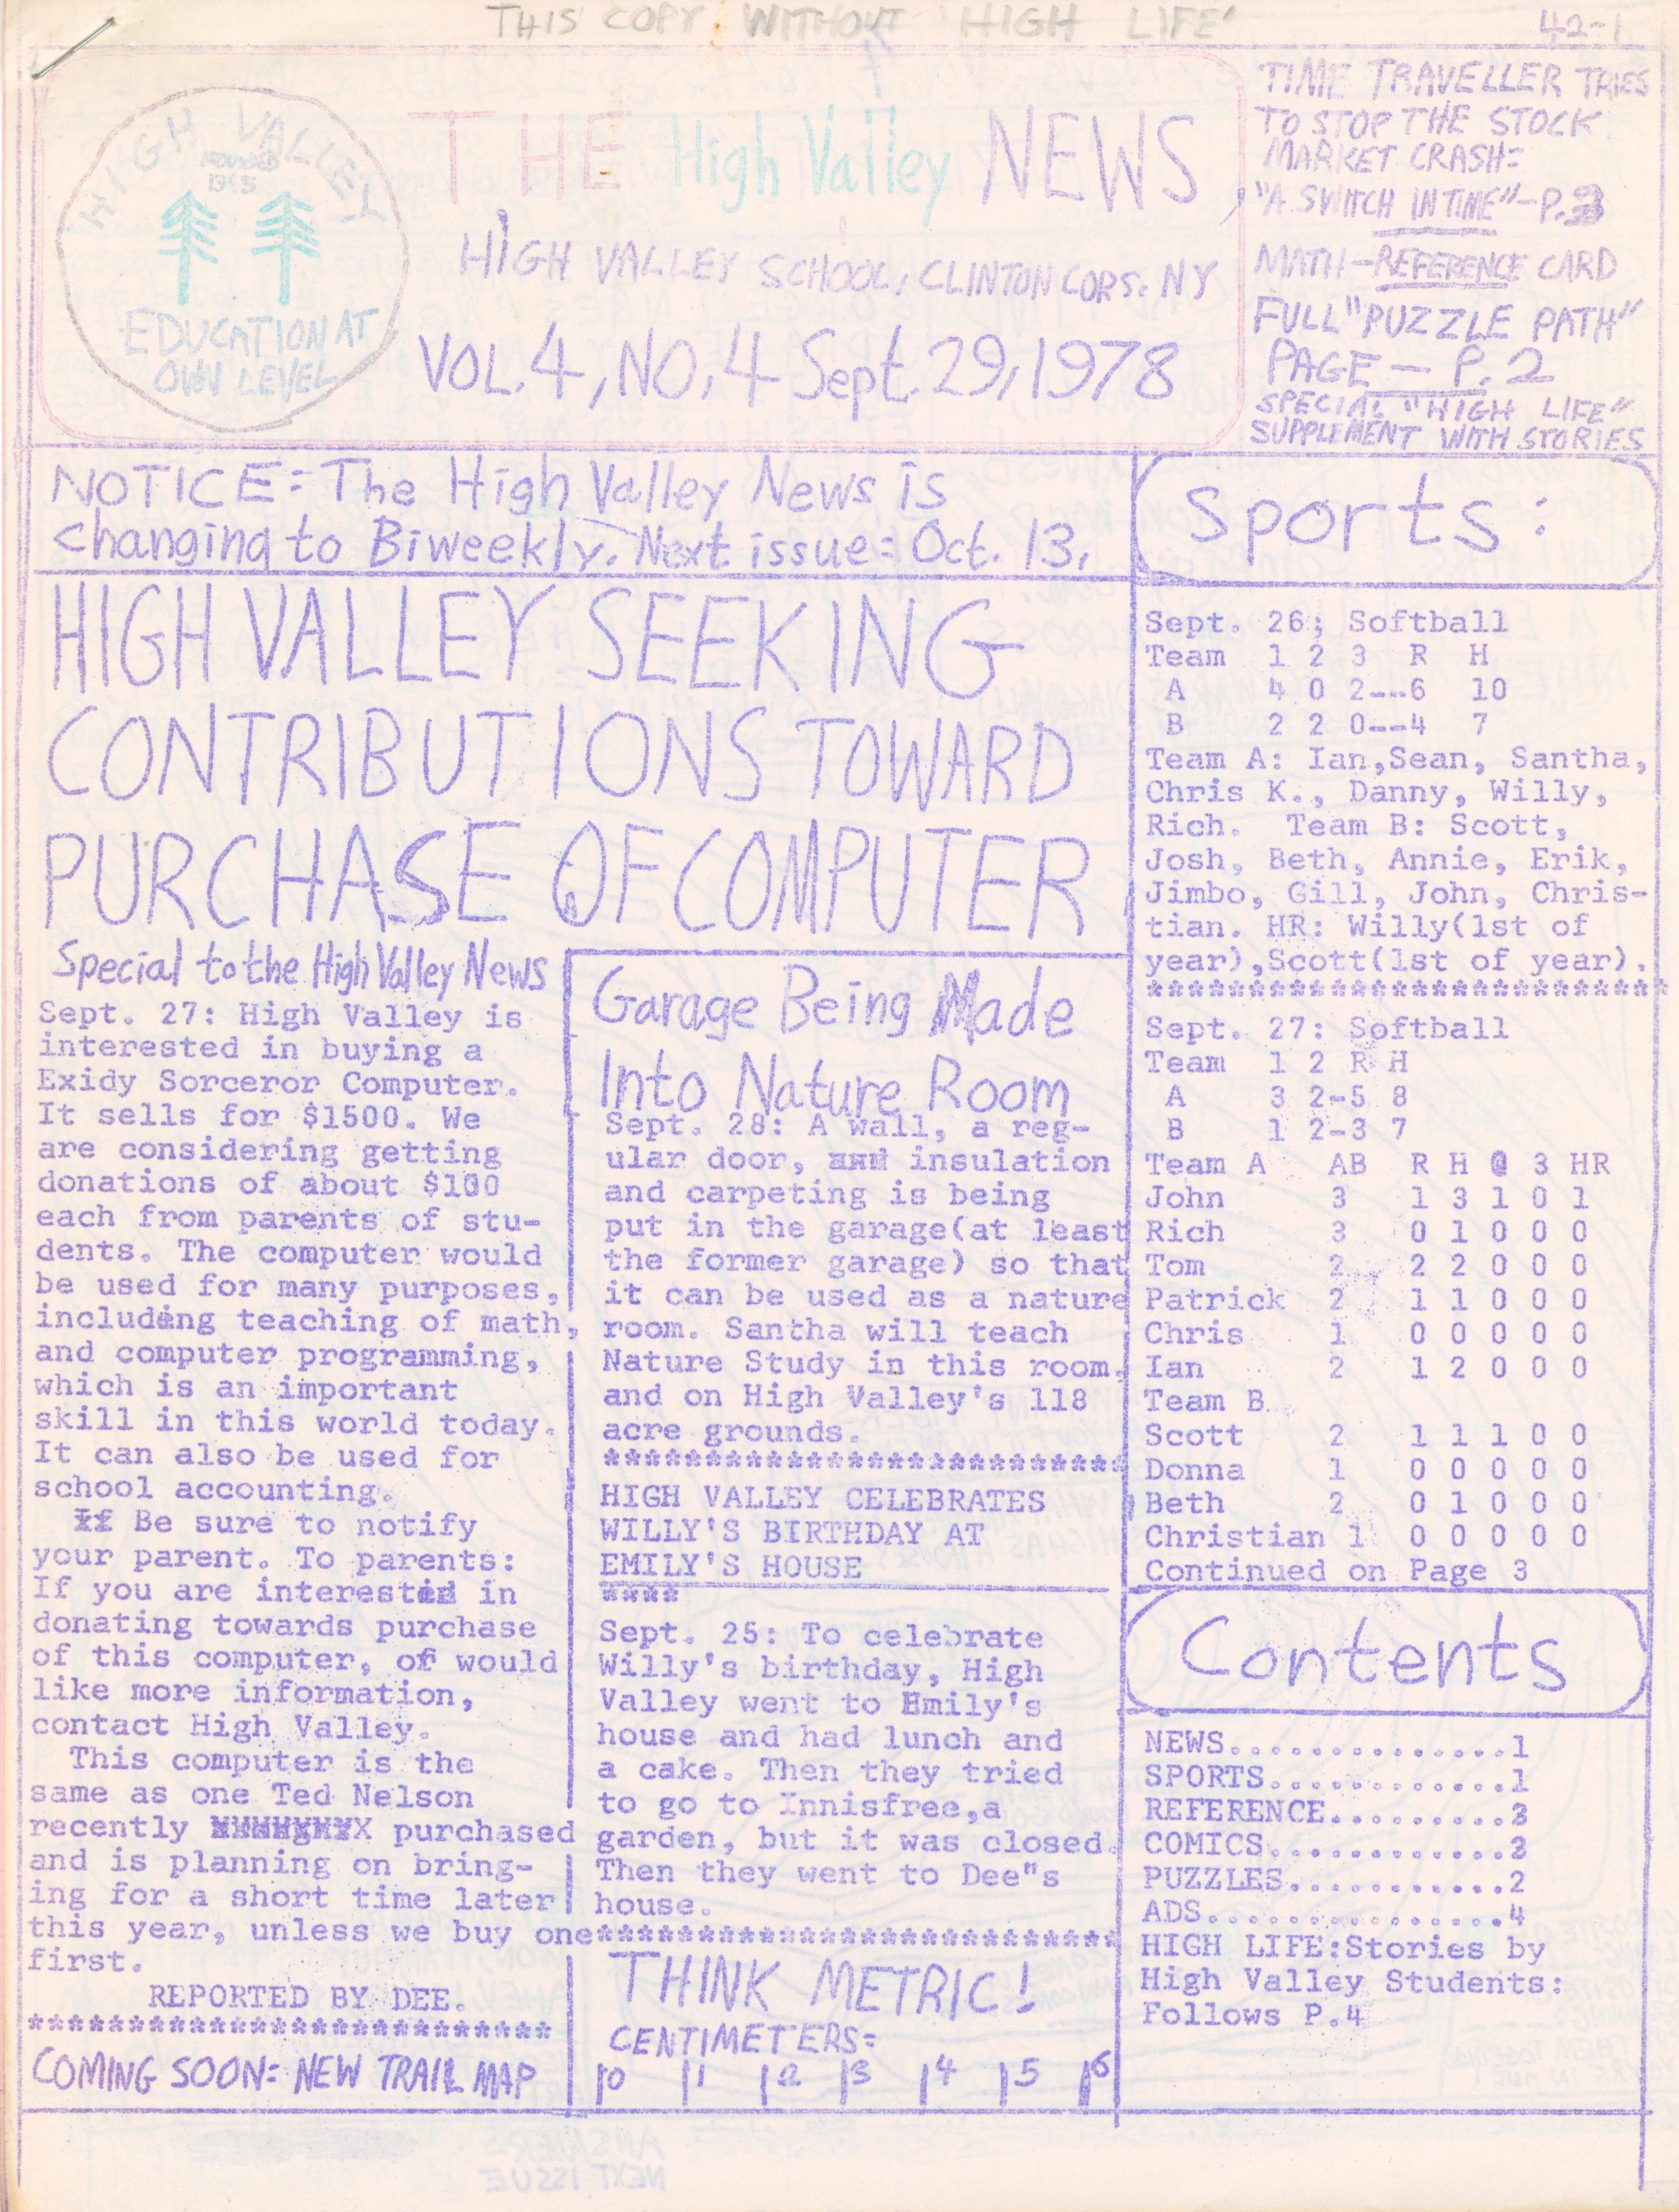 THIS COPY WITHOUT "HIGH LIFE"
42-1
HIGH VALLEY
FOUNDED
1945
EDUCATION AT
OWN LEVEL
THE High Valley NEWS
HIGH VALLEY SCHOOL, CLINTON CORS. NY
VOL. 4, NO. 4 Sept. 29, 1978
TIME TRAVELLER TRIES
TO STOP THE STOCK
MARKET CRASH=
"A SWITCH IN TIME"-P.3
MATH-REFERENCE CARD
FULL "PUZZLE PATH"
PAGE - P. 2
SPECIAL "HIGH LIFE"
SUPPLEMENT WITH STORIES
NOTICE: The High Valley News is
changing to Biweekly. Next issue: Oct. 13.
HIGH VALLEY SEEKING
CONTRIBUTIONS TOWARD
PURCHASE OF COMPUTER
Special to the High Valley News
Sept. 27: High Valley is
interested in buying a
Exidy Sorceror Computer.
It sells for $1500. We
are considering getting
donations of about $100
each from parents of stu-
dents. The computer would
be used for many purposes,
including teaching of math,
and computer programming,
which is an important
skill in this world today.
It can also be used for
school accounting.
Be sure to notify
your parent. To parents:
If you are interested in
donating towards purchase
of this computer, or would
like more information,
contact High Valley.
This computer is the
same as one Ted Nelson
recently purchased
and is planning on bring-
ing for a short time later
this year, unless we buy one
first.
REPORTED BY DEE.
**************************
COMING SOON: NEW TRAIL MAP
Garage Being Made
Into Nature Room
Sept. 28: A wall, a reg-
ular door, insulation
and carpeting is being
put in the garage(at least
the former garage) so that
it can be used as a nature
room. Santha will teach
Nature Study in this room.
and on High Valley's 118
acre grounds.
**************************
HIGH VALLEY CELEBRATES
WILLY'S BIRTHDAY AT
EMILY'S HOUSE
****
Sept. 25: To celebrate
Willy's birthday, High
Valley went to Emily's
house and had lunch and
a cake. Then they tried
to go to Innisfree,a
garden, but it was closed.
Then they went to Dee"s
house.
**************************
THINK METRIC!
CENTIMETERS:
0 1 2 3 4 5 6
Sports:
Sept. 26; Softball
Team 1 2 3 R H
A 4 0 2--6 10
B 2 2 0--4 7
Team A: Ian,Sean, Santha,
Chris K., Danny, Willy,
Rich. Team B: Scott,
Josh, Beth, Annie, Erik,
Jimbo, Gill, John, Chris-
tian. HR: Willy(1st of
year),Scott(1st of year).
**************************
Sept. 27: Softball
Team 1 2 R H
A 3 2-5 8
B 1 2-3 7
Team A AB R H @ 3 HR
John 3 1 3 1 0 1
Rich 3 0 1 0 0 0
Tom 2 2 2 0 0 0
Patrick 2 1 1 0 0 0
Chris 1 0 0 0 0 0
Ian 2 1 2 0 0 0
Team B
Scott 2 1 1 1 0 0
Donna 1 0 0 0 0 0
Beth 2 0 1 0 0 0
Christian 1 0 0 0 0 0
Continued on Page 3
Contents
NEWS..............1
SPORTS............1
REFERENCE.........3
COMICS............3
PUZZLES...........2
ADS...............4
HIGH LIFE:Stories by
High Valley Students:
Follows P.4
ANSWERS
NEXT ISSUE